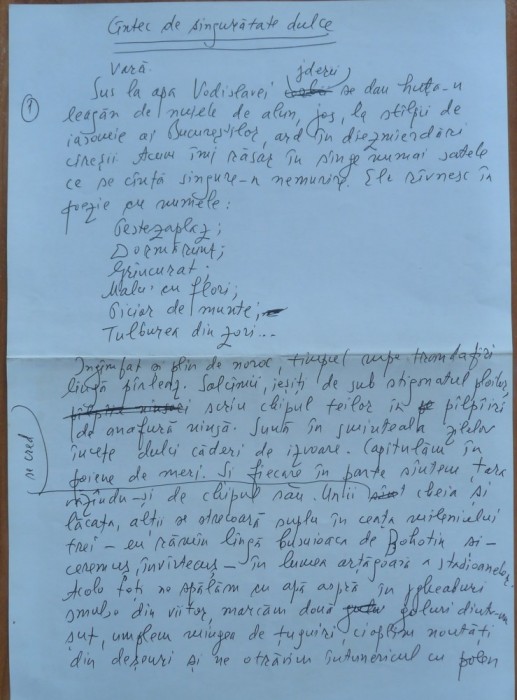 Cîntec de singurătate dulce
Vară.
jderii
Sus la apa Vodislavei se dau huța-n
1
leagăn de nuiele de alun, jos, la stîlpii de
ai Bucureștilor, ard în dezmierdări
cireșii. Acum îmi răsar în sînge numai satele
ce se cîntă singure-n nemurire. Ele rîvnesc în
poezie cu numele:
Peștezaplaz;
Dormărunt;
Grîucurat;
Malu' cu flori;
Picior de munte;
Tulburea din zori...
Îngîmfat și plin de noroc, timpul rupe trandafiri
lîngă pîrleaz. Salcîmii, ieșiți de sub stigmatul ploilor,
scriu chipul teilor în pîlpîiri
de anafură ninsă. Sunt în zilelor
încete dulci căderi de izvoare. Capitulăm în
poiene de meri. Și fiecare în parte sîntem, țara
se cred
rîzîndu-și de chipul său. Unii cheia și
lăcata, alții se strecoară suplu în ceața mileniului
trei – eu rămîn lîngă busuioaca de Bohotin și-
– în lumea arțăgoară a stadioanelor.
Acolo toți ne spălăm cu apă aspră în jgheaburi
smulse din viitor, marcăm două goluri dintr-un
șut, umplem mingea de țuguiri, cioplim noutăți
din deșeuri și ne otrăvim întunericul cu polen